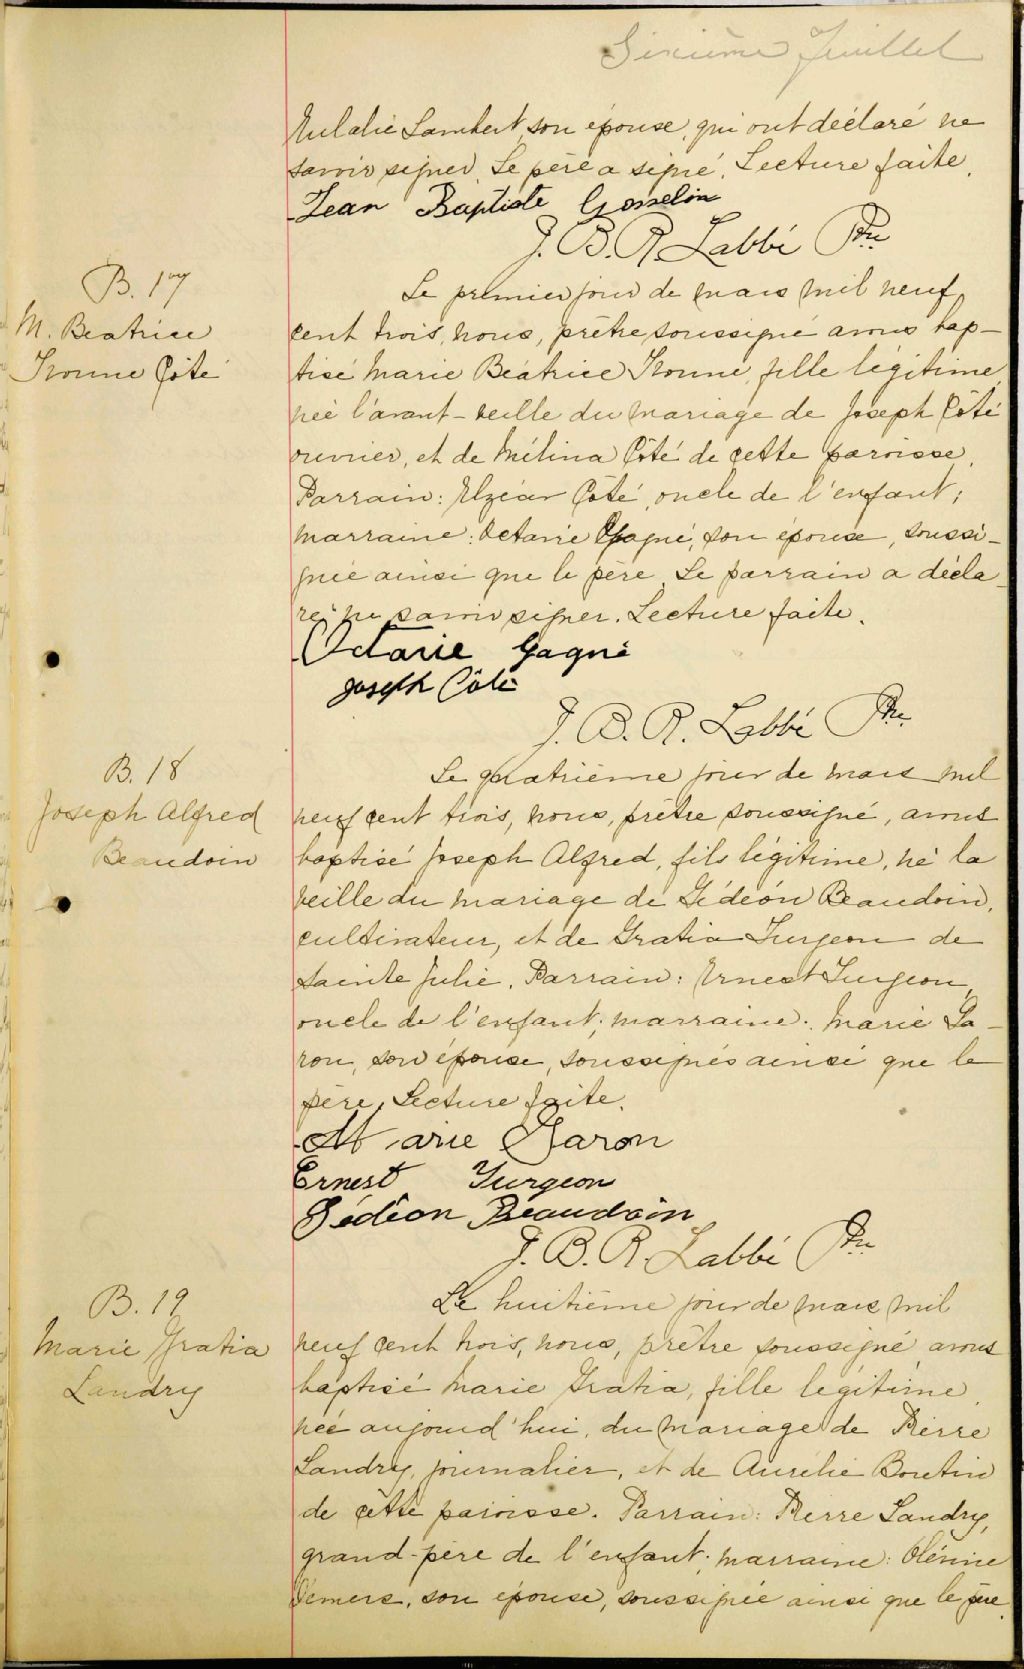 Sixième feuillet
Eulalie Lambert, son épouse, qui ont déclaré ne
savoir signer. Le père a signé. Lecture faite.
Jean Baptiste Gosselin
J. B. R. Labbé Ptre
B. 17
M. Béatrice
Ivonne Côté
Le premier jour de mars mil neuf
cent trois, nous, prêtre soussigné avons bap-
tisé Marie Béatrice Ivonne, fille légitime,
née l'avant-veille du mariage de Joseph Côté
ouvrier, et de Mélina Côté de cette paroisse.
Parrain: Elzéar Côté, oncle de l'enfant;
marraine: Octavie Gagné, son épouse, soussi-
gnée ainsi que le père. Le parrain a décla-
ré ne savoir signer. Lecture faite.
Octavie Gagné
Joseph Côté
J. B. R. Labbé Ptre
B. 18
Joseph Alfred
Beaudoin
Le quatrième jour de mars mil
neuf cent trois, nous, prêtre soussigné, avons
baptisé Joseph Alfred, fils légitime, né la
veille du mariage de Gédéon Beaudoin,
cultivateur, et de Gratia Turgeon de
Sainte Julie. Parrain: Ernest Turgeon,
oncle de l'enfant; marraine: Marie Ga-
ron, son épouse, soussignés ainsi que le
père. Lecture faite.
Marie Garon
Ernest Turgeon
Gédéon Beaudoin
J. B. R. Labbé Ptre
B. 19
Marie Gratia
Landry
Le huitième jour de mars mil
neuf cent trois, nous, prêtre soussigné avons
baptisé Marie Gratia, fille légitime,
née aujourd'hui, du mariage de Pierre
Landry, journalier, et de Aurélie Boutin
de cette paroisse. Parrain: Pierre Landry,
grand-père de l'enfant; marraine: Olérine
Demers, son épouse, soussignée ainsi que le père.